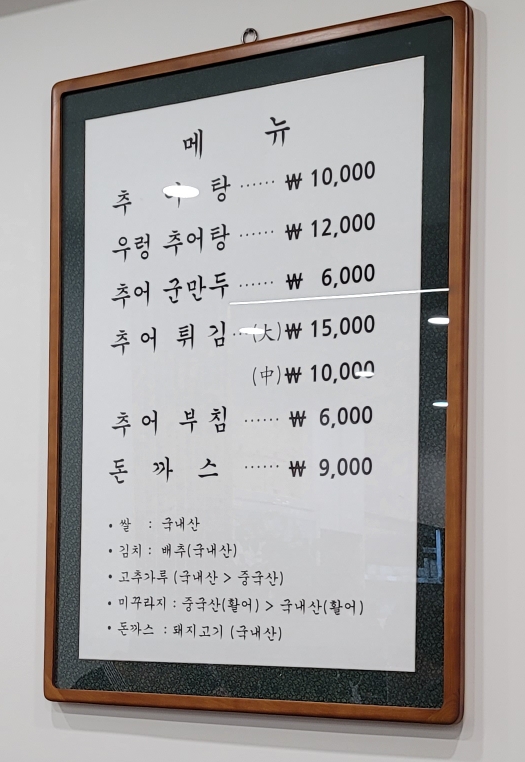 메 뉴
추 어 탕 ······ ₩ 10,000
우렁 추어탕 ······ ₩ 12,000
추어 군만두 ······ ₩ 6,000
추 어 튀 김 ···(大)₩ 15,000
(中)₩ 10,000
추 어 부 침 ······ ₩ 6,000
돈 까 스 ······ ₩ 9,000
• 쌀 : 국내산
• 김치 : 배추(국내산)
• 고추가루 (국내산 > 중국산)
• 미꾸라지 : 중국산(활어) > 국내산(활어)
• 돈까스 : 돼지고기 (국내산)